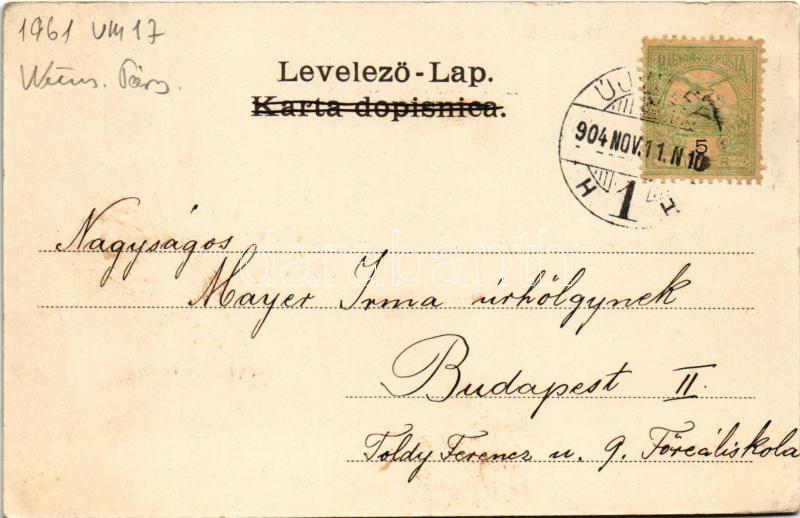 1961 VIII 17
Levelező-Lap.
Karta dopisnica.
MAGYAR KIR. POSTA
5
904 NOV. 11. N 10
1
Nagyságos
Mayer Irma úrhölgynek
Budapest II.
Toldy Ferencz u. 9. Főreáliskola
darabanth